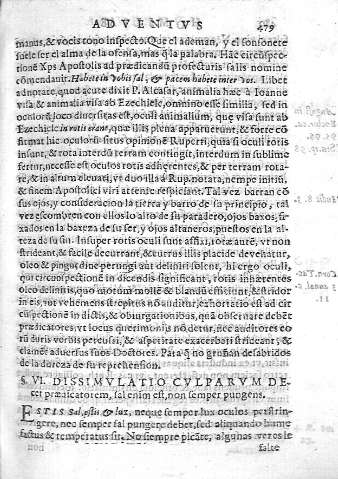 ADVENTVS 479
manus, & vocis tono inspecto. Que el ademan, y el sonsonete
suele ser el alma de la ofensa, mas q̃ la palabra. Hãc circũspec-
tionẽ Xp̃s Apostolis ad prædicandũ profecturis salis nomine
cõmendauit. Habete in vobis sal, & pacem habete inter vos. Libet
adnotare, quod acute dixit P. Alcasar, animalia hæc à Ioanne
visa, & animalia visa ab Ezechiele, omnino esse similia, sed in
oculorũ loco diuersitas est, oculi animalium, quę visa sunt ab
Ezechiele in rotis erant, quæ illis plena apparuerunt, & forte cõ
firmat hic oculorũ situs opinionẽ Ruperti, quia si oculi rotis
insunt, & rota interdũ terram contingit, interdum in sublime
fertur, necesse est oculos rotis adhęrentes, & per terram rota-
re, & in altum eleuari, vt duo illa à Rup. notata, nempe initiũ,
& finem Apostolici viri attente respiciant. Tal vez barran cõ
sus ojos, y consideracion la tierra y barro de su principio, tal
vez escombren con ellos lo alto de su paradero, ojos baxos, fi-
xados en la baxeza de su ser, y ojos altaneros, puestos en la al-
teza de su fin. Insuper rotis oculi sunt affixi, rotæ autẽ, vt non
strideant, & facile decurrant, & currus illis placide deuehatur,
oleo & pinguedine perungi aut deliniri solent, hi ergo oculi,
qui circunspectionẽ in dicendis significant, rotis inhærentes
oleo deliniendis, quo motum mollẽ & blandũ efficiunt, & stridor
in eis, vel vehemens strepitus nõ auditur, exhortatio est ad cir
cũspectionẽ in dictis, & obiurgationibus, quã obseruare debent
prædicatores, vt locus querimoniis nõ detur, nec auditores eo
rũ duris verbis perculsi, & asperitate exacerbati strideant, &
clamẽt aduersus suos Doctores. Para q̃ no gruñan desabridos
de la dureza de su reprension.
§. VI. DISSIMVLATIO CVLPARVM DE-
cet prædicatorem, sal enim est, non semper pungens.
ESTIS Sal, estis & lux, neque semper lux oculos perstrin-
gere, nec semper sal pungere debet, sed aliquando hume
factus & temperatus sit. No siempre picãte, algunas vezes le
falte